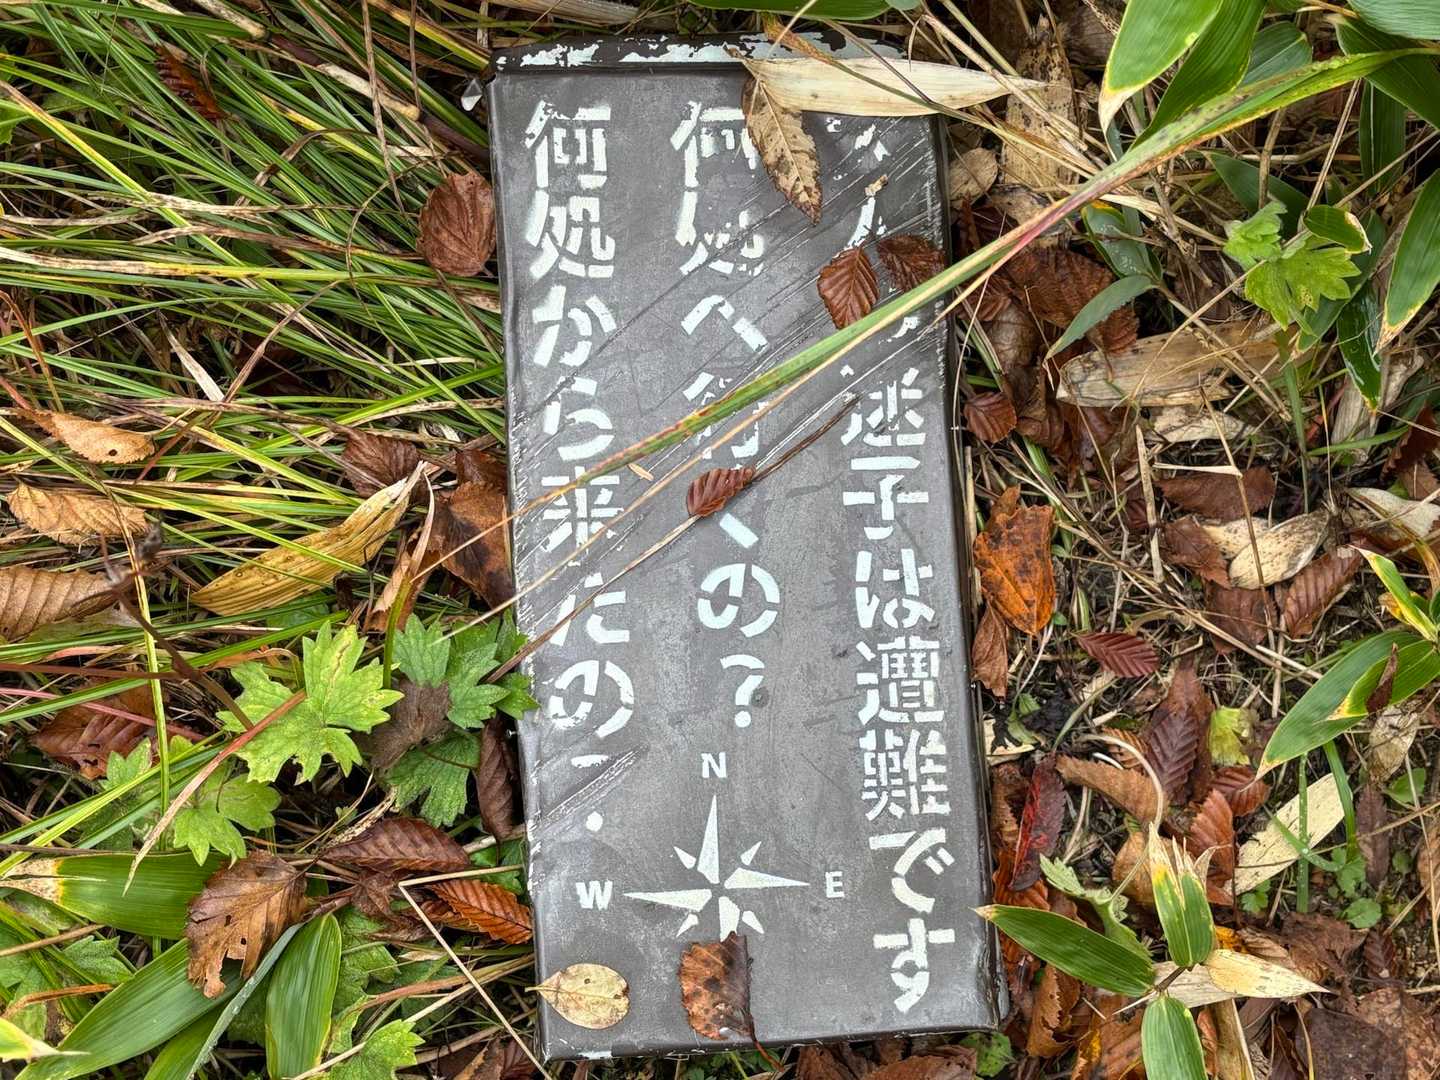 大人の迷子は遭難です
何処へ行くの?
何処から来たの?
N
W E